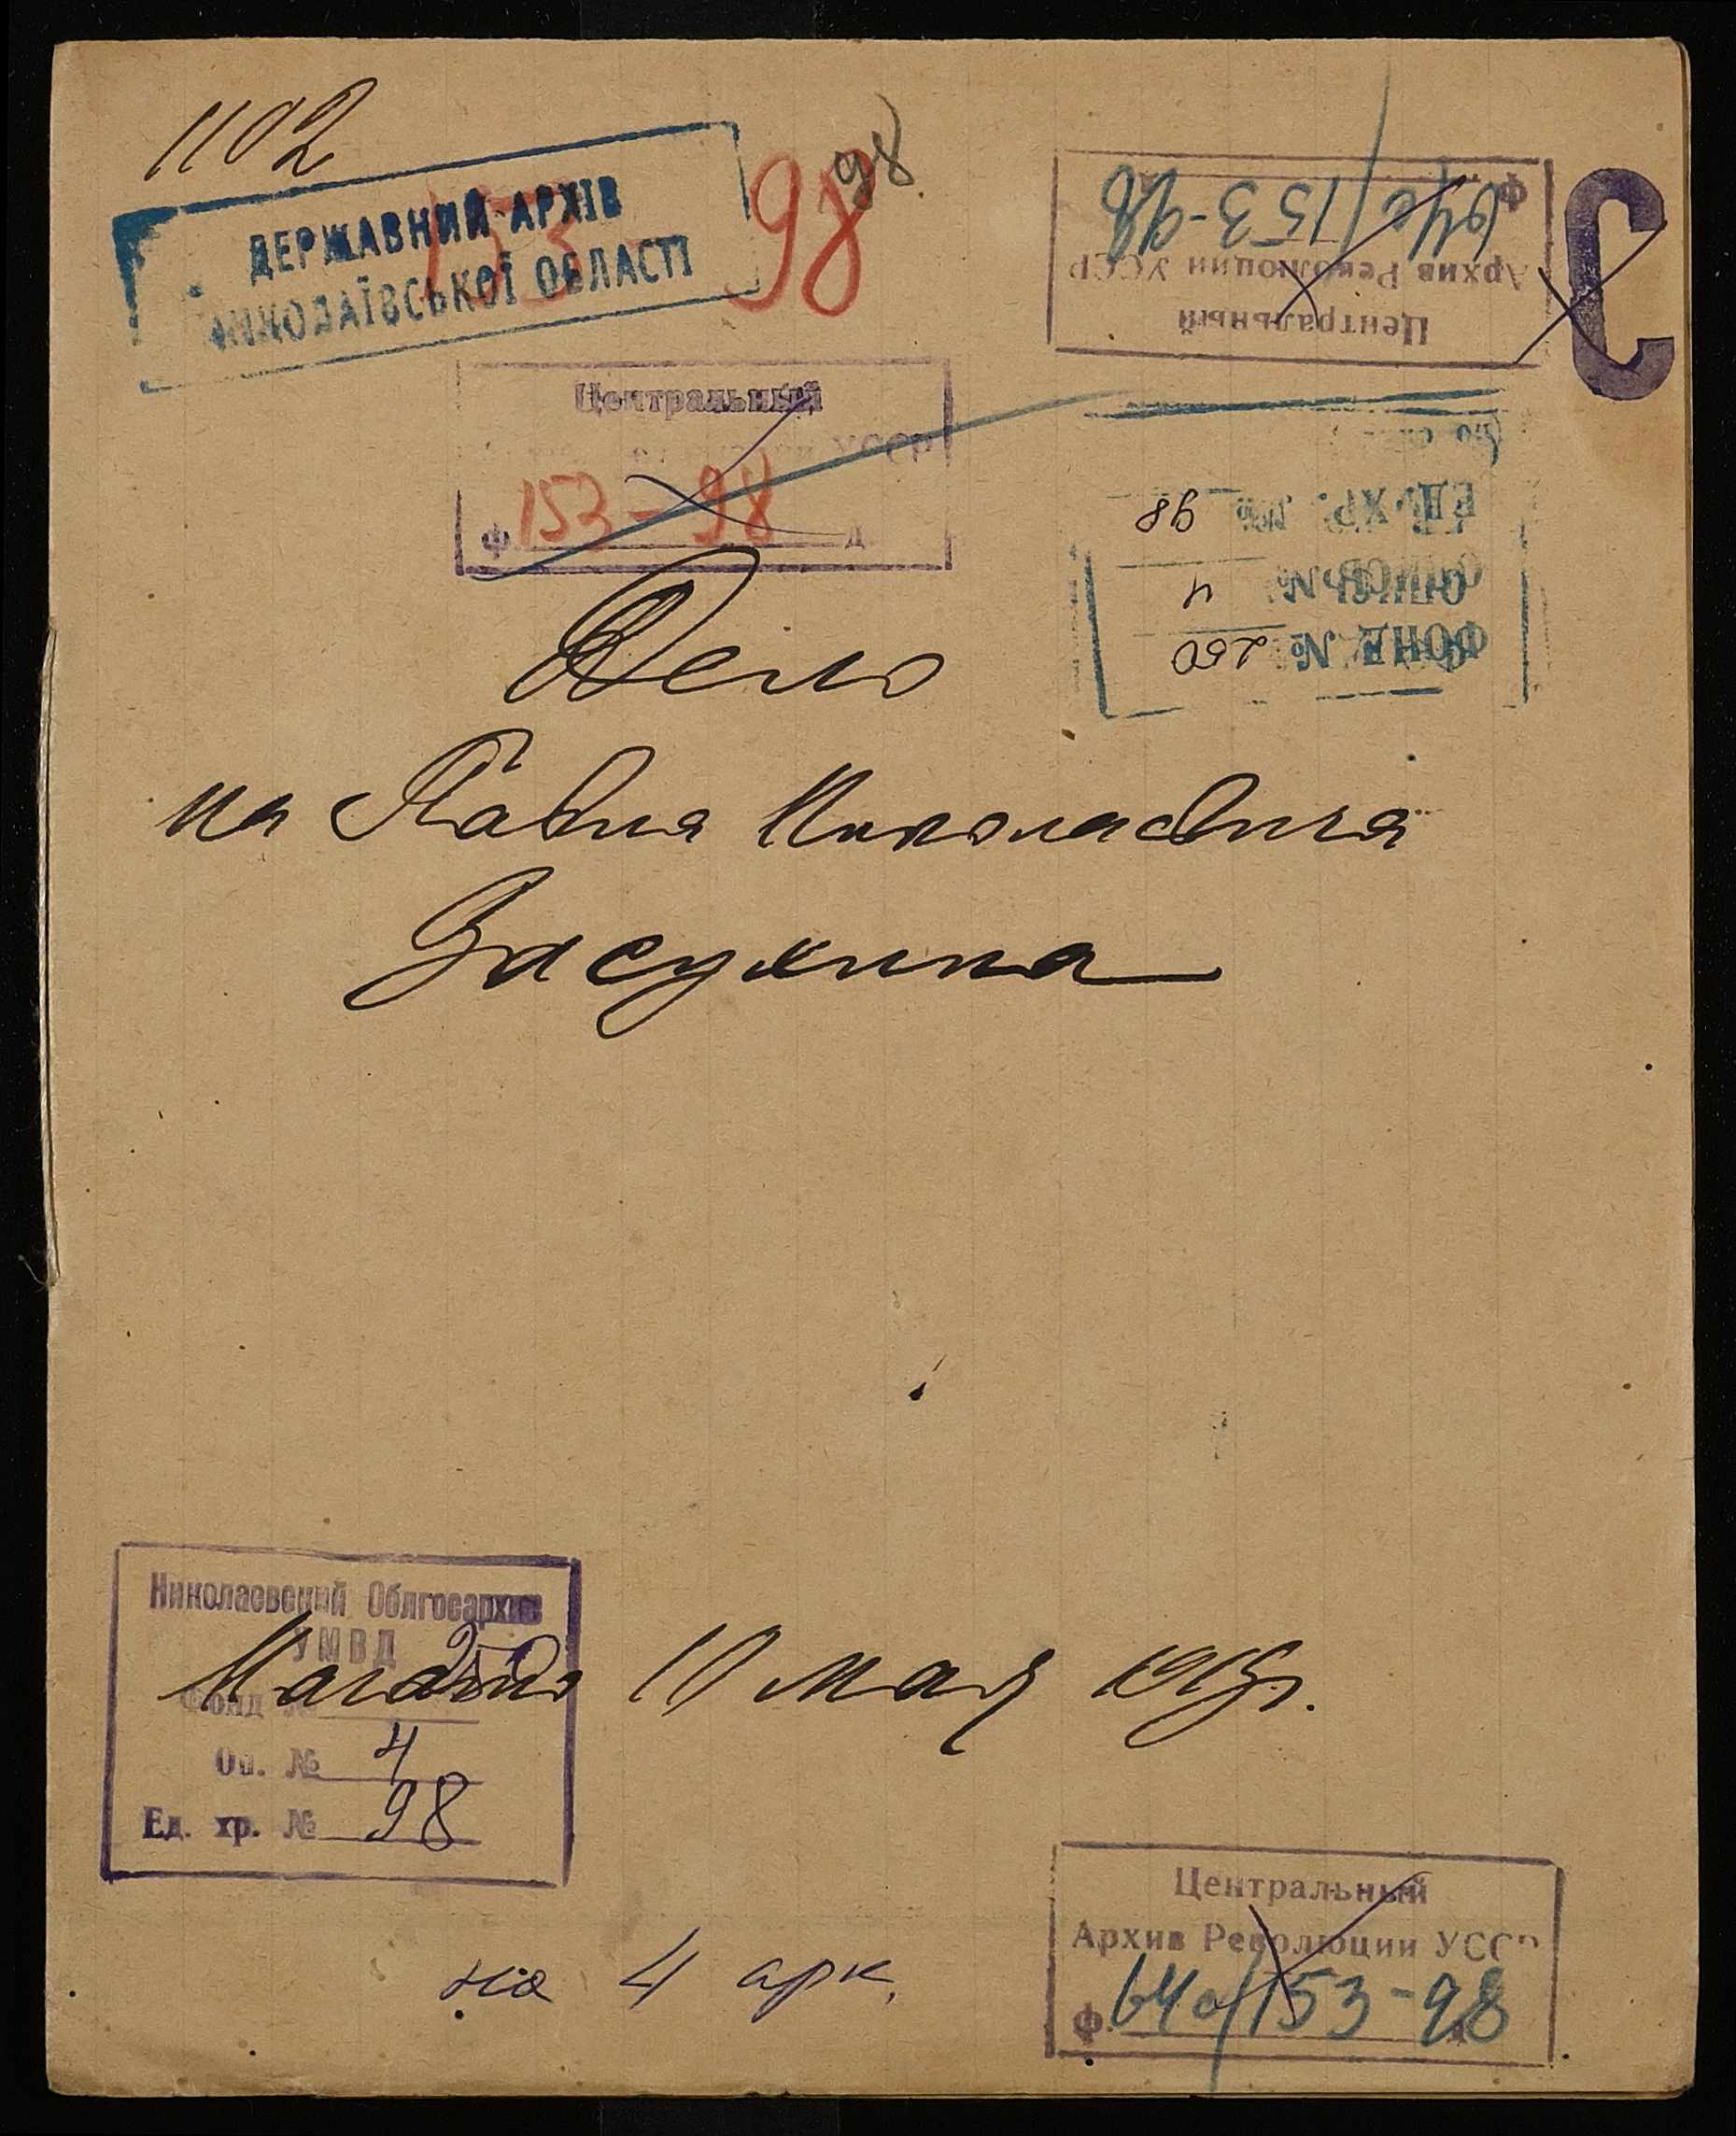 1102
ДЕРЖАВНИЙ АРХІВ
МИКОЛАЇВСЬКОЇ ОБЛАСТІ
98
98
Центральный
Архив Революции УССР
Ф. 64с/153-98
С
Центральный
УССР
Ф. 153-98 д.
ФОНД № 250
ОПИСЬ № 4
ЕД. ХР. № 98
Дело
на Павла Николаевича
Засухина
Николаевский Облгосархив
УМВД
Фонд № 250
Оп. № 4
Ед. хр. № 98
10 мая
на 4 арк.
Центральный
Архив Революции УССР
Ф. 64с/153-98